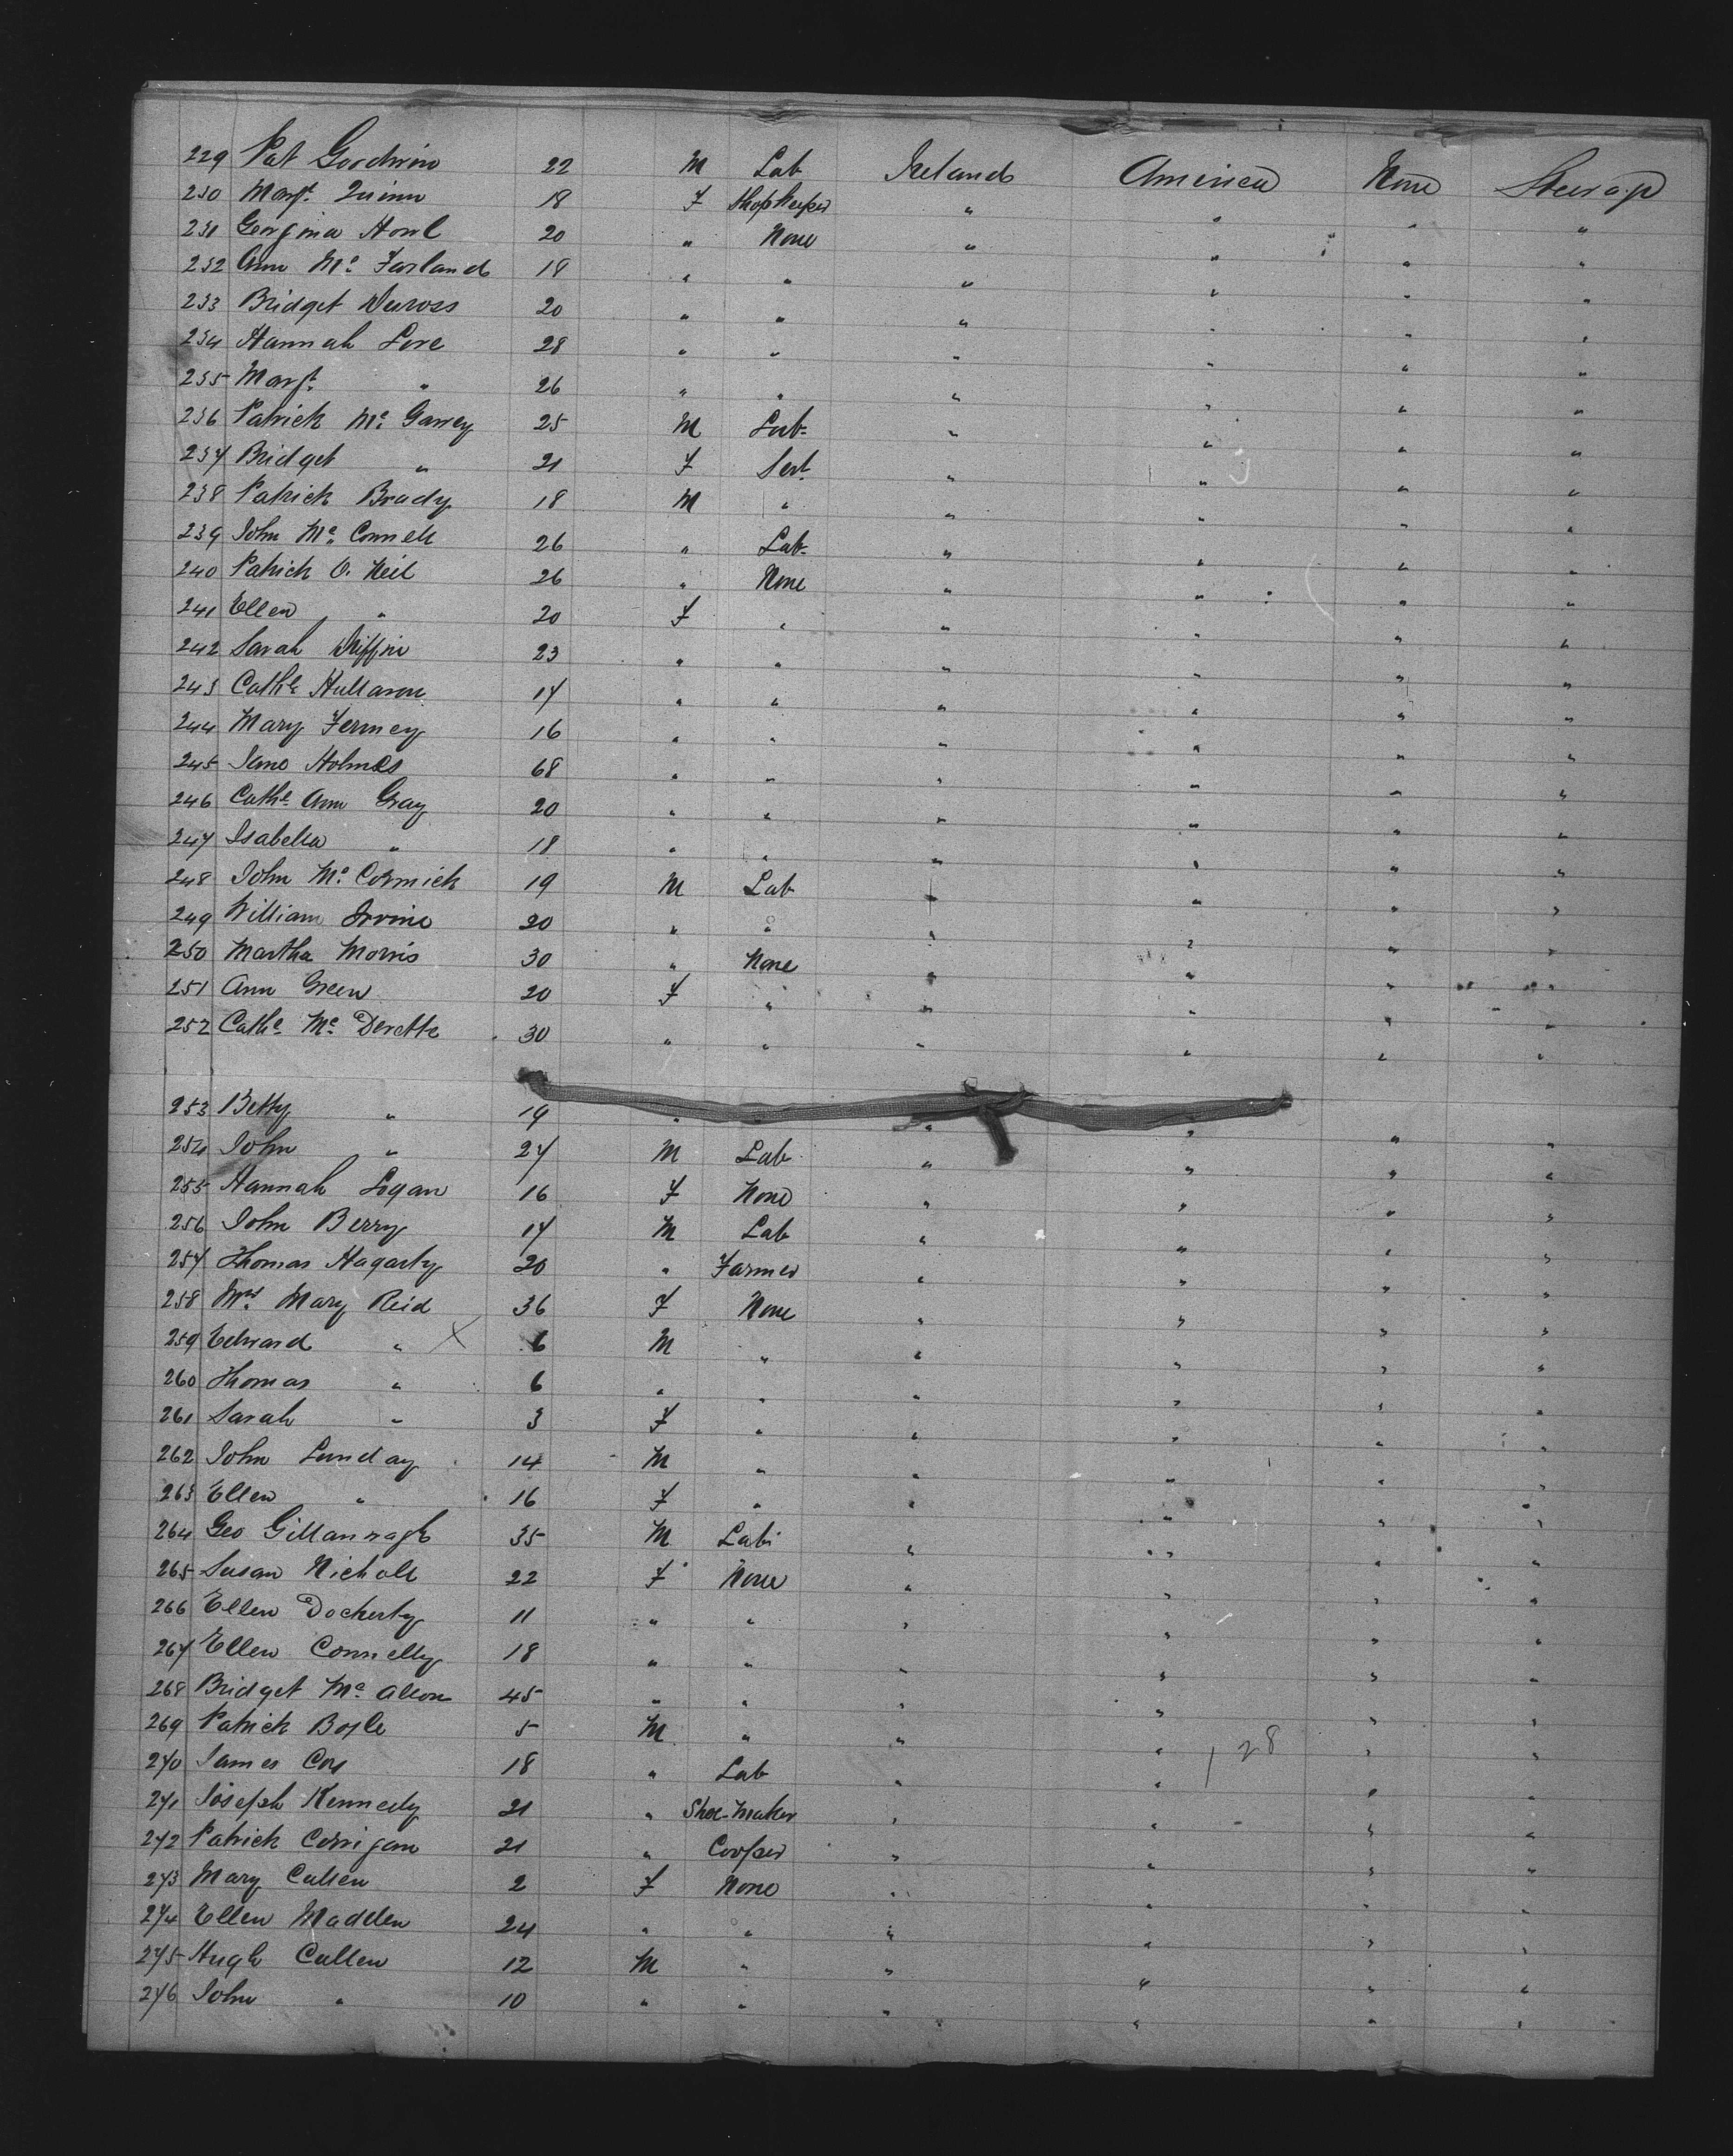 229 Pat Goodwin 22 M Lab Ireland America None Steerage
230 Margt. Quinn 18 F Shopkeeper " " " "
231 Georgina Howl 20 " None " " " "
232 Ann Mc Farland 18 " " " " " "
233 Bridget 20 " " " " " "
234 Hannah Love 28 " " " " " "
235 Margt. " 26 " " " " " "
236 Patrick Mc Garvey 25 M Lab " " " "
237 Bridget " 21 F Sert. " " " "
238 Patrick Brady 18 M " " " " "
239 John Mc Connell 26 " Lab " " " "
240 Patrick O. Neil 26 " None " " " "
241 Ellen " 20 F " " " " "
242 Sarah 23 " " " " " "
243 Cathe 17 " " " " " "
244 Mary Ferney 16 " " " " " "
245 Jane Holmes 68 " " " " " "
246 Cathe Ann Gray 20 " " " " " "
247 Isabella " 18 " " " " " "
248 John Mc Cormick 19 M Lab " " " "
249 William Irvine 20 " " " " " "
250 Martha Morris 30 " None " " " "
251 Ann Green 20 F " " " " "
252 Cathe Mc Devette 30 " " " " " "
253 Betty " 19 " " " " "
254 John " 27 M Lab " " " "
255 Hannah Logan 16 F None " " " "
256 John Berry 17 M Lab " " " "
257 Thomas Hagarty 20 " Farmer " " " "
258 Mrs Mary Reid 36 F None " " " "
259 Edward " X 6 M " " " " "
260 Thomas " 6 " " " " " "
261 Sarah " 3 F " " " " "
262 John Lunday 14 M " " " " "
263 Ellen " 16 F " " " " "
264 Geo 35 M Lab " " " "
265 Susan Nicholl 22 F None " " " "
266 Ellen Docherty 11 " " " " " "
267 Ellen Connelly 18 " " " " " "
268 Bridget Mc Aleon 45 " " " " " "
269 Patrick Boyle 5 M " " " " "
128
270 James Coy 18 " Lab " " " "
271 Joseph Kennedy 21 " Shoe-maker " " " "
272 Patrick Corrigan 21 " Cooper " " " "
273 Mary Cullen 2 F None " " " "
274 Ellen Madden 24 " " " " " "
275 Hugh Cullen 12 M " " " " "
276 John " 10 " " " " " "